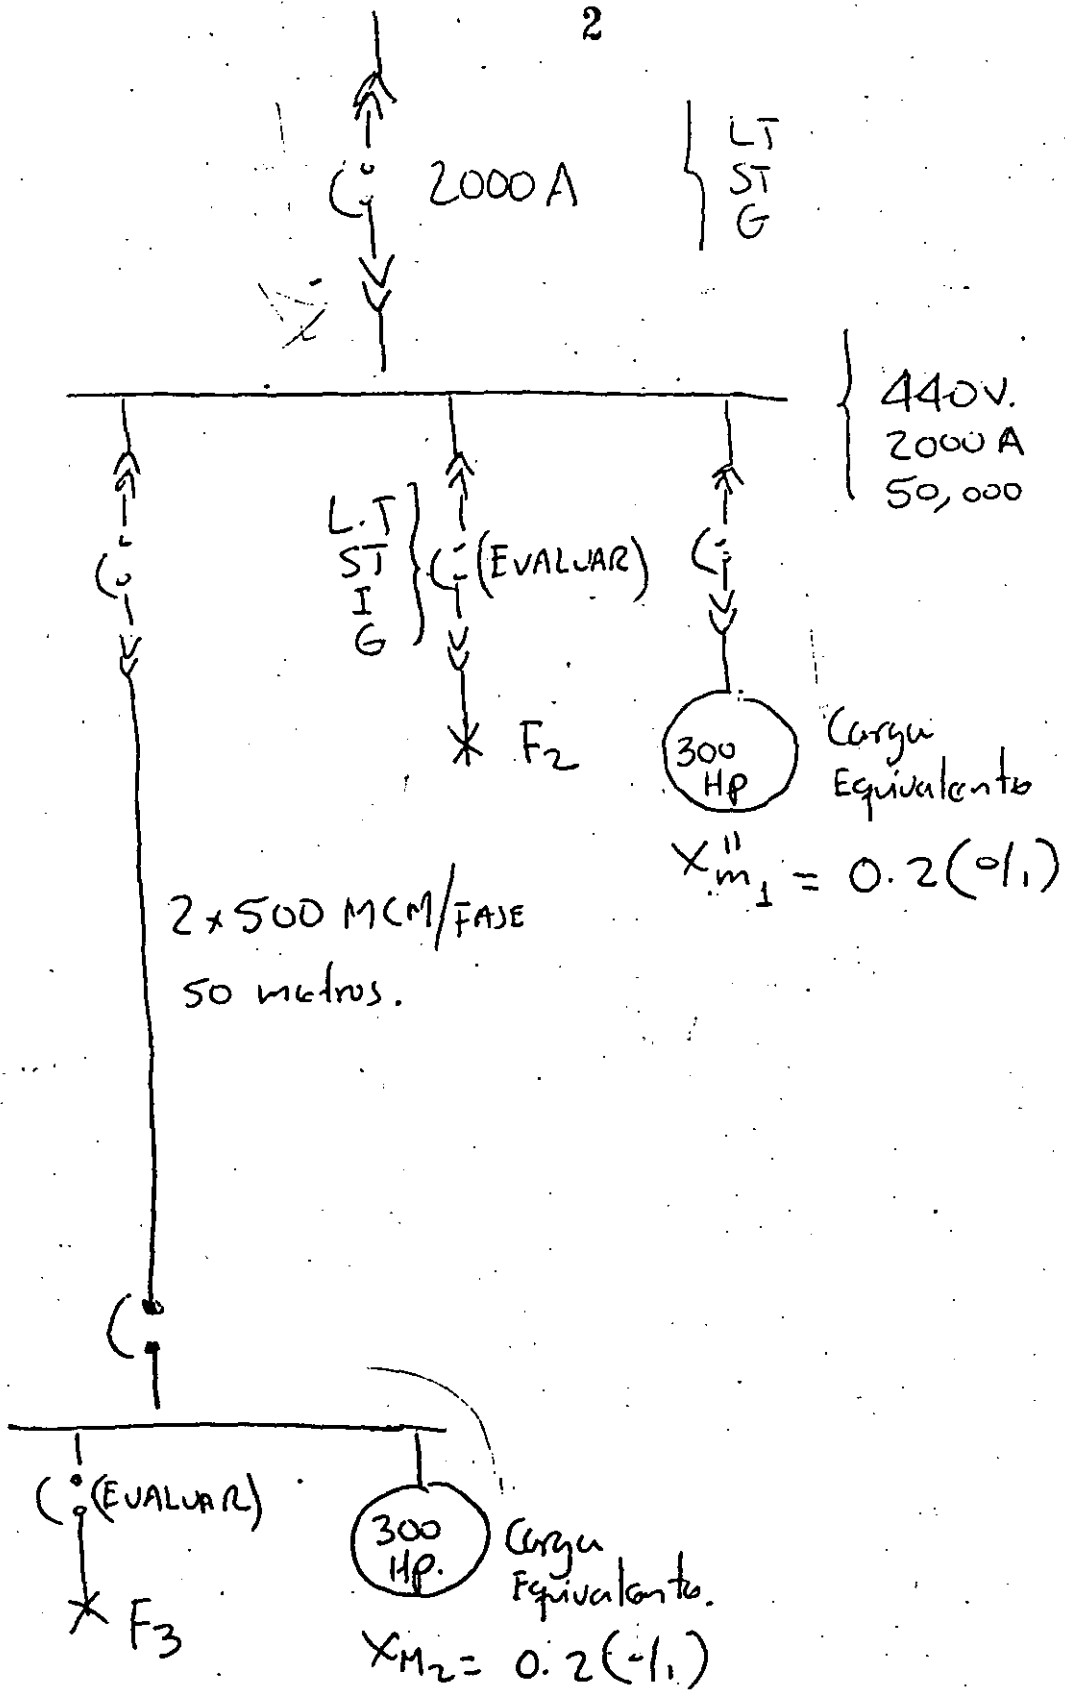 2
2000 A
LT
ST
G
440 V.
2000 A
50,000
L.T
ST
I
G
(EVALUAR)
F2
300
HP
Carga
Equivalente
X"m1 = 0.2 (°/1)
2 x 500 MCM/FASE
50 metros.
(EVALUAR)
F3
300
Hp.
Carga
Equivalente.
XM2 = 0.2 (-/1)